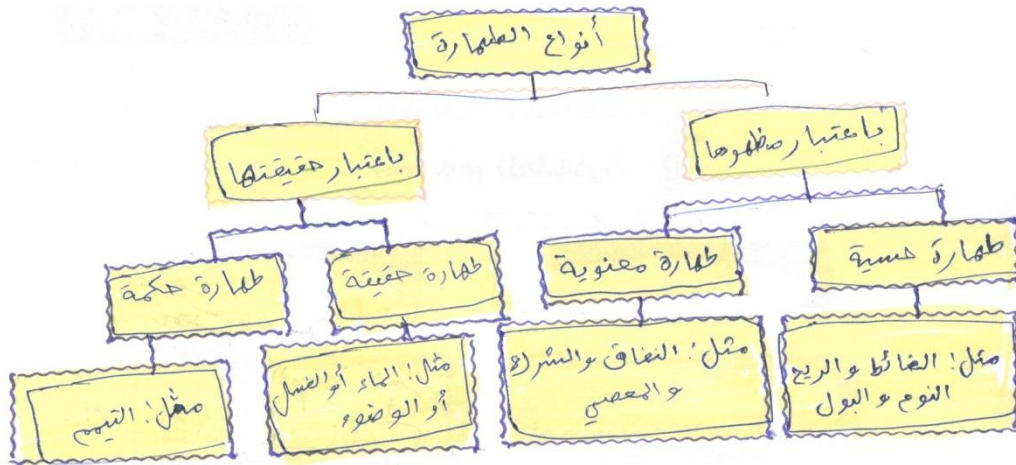 أنواع الطهارة
باعتبار مظهرها
باعتبار حقيقتها
طهارة حسية
طهارة معنوية
طهارة حقيقة
طهارة حكمة
مثل: الغائط والريح
النوم والبول
مثل: النفاق والشرك
والمعصي
مثل: الماء أو الغسل
أو الوضوء
مثل: التيمم